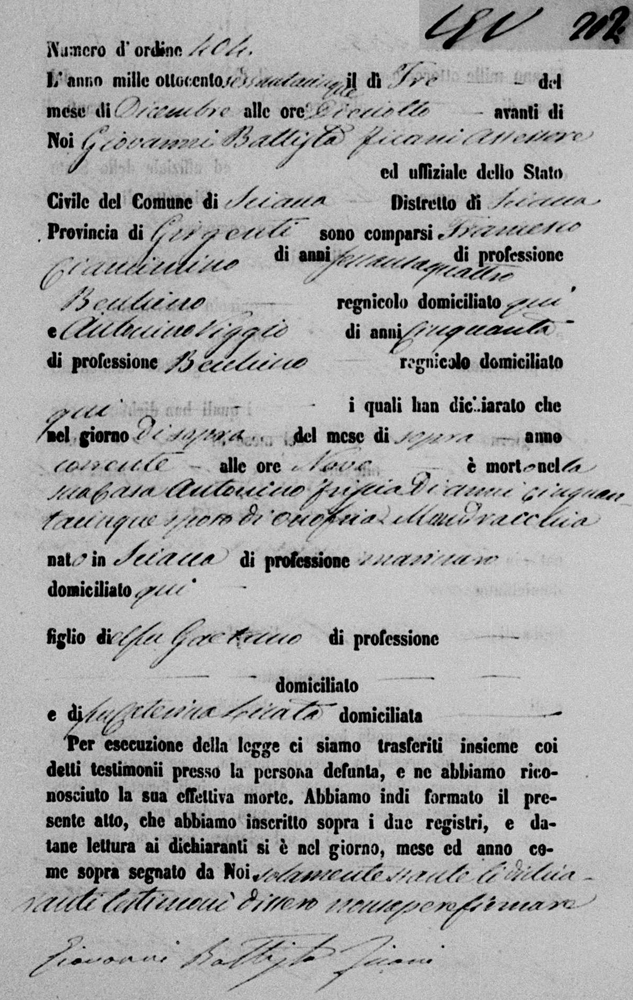 202
Numero d' ordine 404.
L' anno mille ottocento sessantacinque il dì Tre del
mese di Dicembre alle ore Dieciotto avanti di
Noi Giovanni Battista Ficani Assessore
ed uffiziale dello Stato
Civile del Comune di Sciacca Distretto di Sciacca
Provincia di Girgenti sono comparsi Francesco
Ciancimino di anni sessantaquattro di professione
Becchino regnicolo domiciliato qui
e Antonino Piggio di anni Cinquanta
di professione Becchino regnicolo domiciliato
qui i quali han dichiarato che
nel giorno di sopra del mese di sopra anno
corrente alle ore Nove è morto nella
sua Casa Antonino Friscia di anni cinquan-
tacinque sposo di Onofria Mandracchia
nato in Sciacca di professione marinaro
domiciliato qui
figlio di fu Gaetano di professione
domiciliato
e di fu Caterina Licata domiciliata
Per esecuzione della legge ci siamo trasferiti insieme coi
detti testimonii presso la persona defunta, e ne abbiamo rico-
nosciuto la sua effettiva morte. Abbiamo indi formato il pre-
sente atto, che abbiamo inscritto sopra i due registri, e da-
tane lettura ai dichiaranti si è nel giorno, mese ed anno co-
me sopra segnato da Noi solamente stante li dichia-
ranti testimoni dissero non saper firmare
Giovanni Battista Ficani